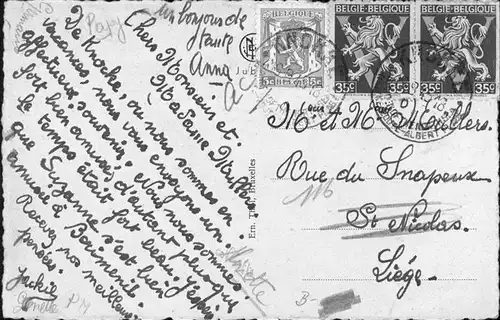 un bonjour de
Stante
Anna
Chers Monsieur et
Madame Mullers
De Knocke, où nous sommes en
vacances, nous vous envoyons un
affectueux souvenir. Nous sommes
fort bien arrivés, d'autant plus que
le temps était fort beau. J'espère
que Suzanne s'est bien
amusée à
Recevez nos meilleures
pensées.
Jackie
Ginette PM
Ern. Thill, Bruxelles
BELGIQUE
5c
BELGIE-BELGIQUE
35c
BELGIE-BELGIQUE
35c
ALBERT
M et M Mullers.
Rue du Snapeux
116
St Nicolas.
Liége.
B-